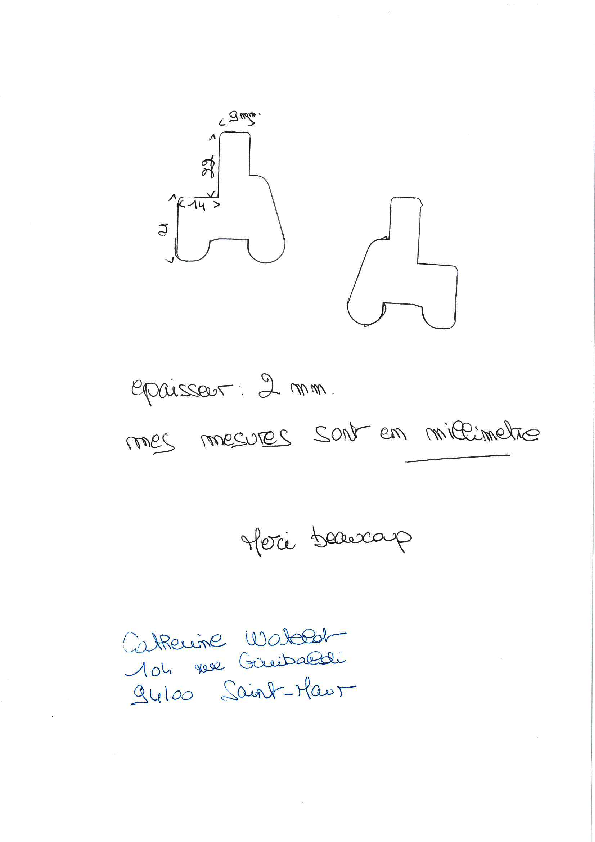 9mm.
22
14
21
epaisseur: 2 mm.
mes mesures sont en millimetre
Merci beaucoup
Catherine
104 rue Garibaldi
94100 Saint-Maur